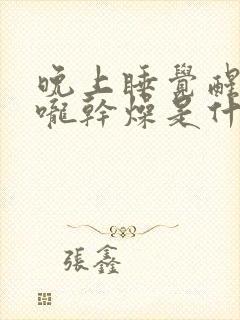 晚上睡覺醒
嚨幹燥是什
張鑫